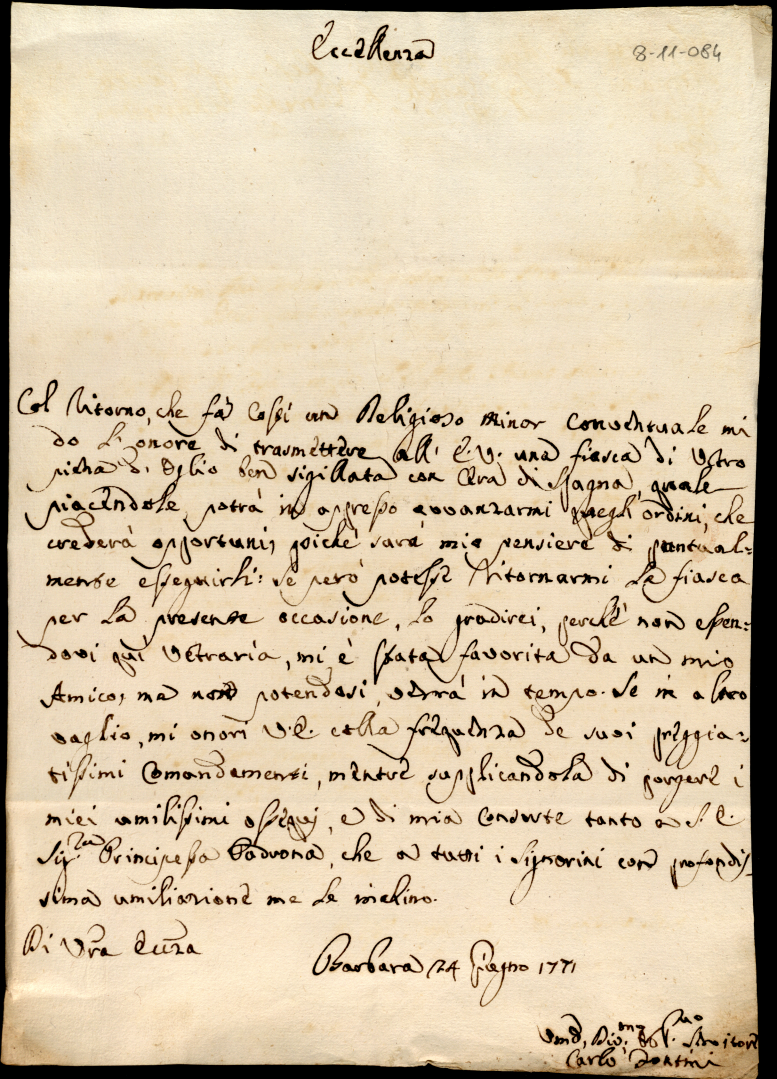 Eccellenza
8-11-084
Col ritorno, che fà costì un Religioso Minor Conventuale mi
do l'onore di trasmettere all' E. V. una fiasca di Vetro
piena d'Oglio ben sigillata con Cera di Spagna, quale
piacendole, potrà in appresso avvanzarmi quegli ordini, che
crederà opportuni, poiché sarà mio pensiere di pontual-
mente esseguirli: Se però potesse ritornarmi la fiasca
per la presente occasione, lo gradirei, perché non essen-
dovi quì Vetraria, mi è stata favorita da un mio
Amico, ma non potendosi, verrà in tempo. Se in altro
vaglio, mi onori V. E. colla frequenza de suoi preggia-
tissimi Comandamenti, mentre supplicandola di porgere i
miei umilissimi ossequj, e di mia Consorte tanto a S. E.
Sig.ra Principessa Padrona, che a tutti i Signorini con profondis-
sima umiliazione me le inchino.
Di Vra Eccza
Barbara 24 Giugno 1771
Umo, Divmo, Obmo Servitore
Carlo